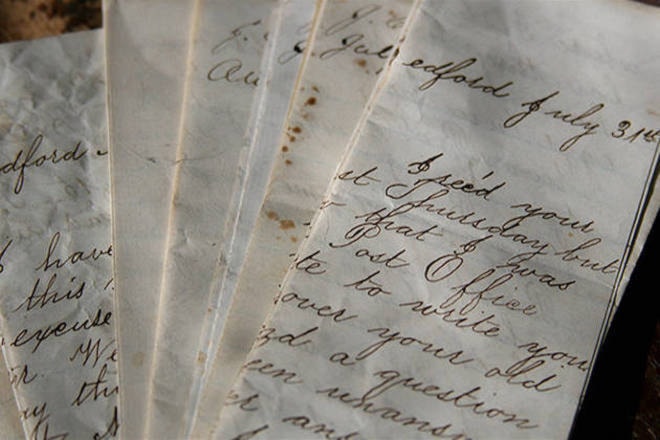 dford
have
this
excuse
r. We
ay th
Au
July
edford July 31st
I rec'd your
st Thursday but
that I was
Post Office
te to write you
over your old
nd a question
een unansw
er an